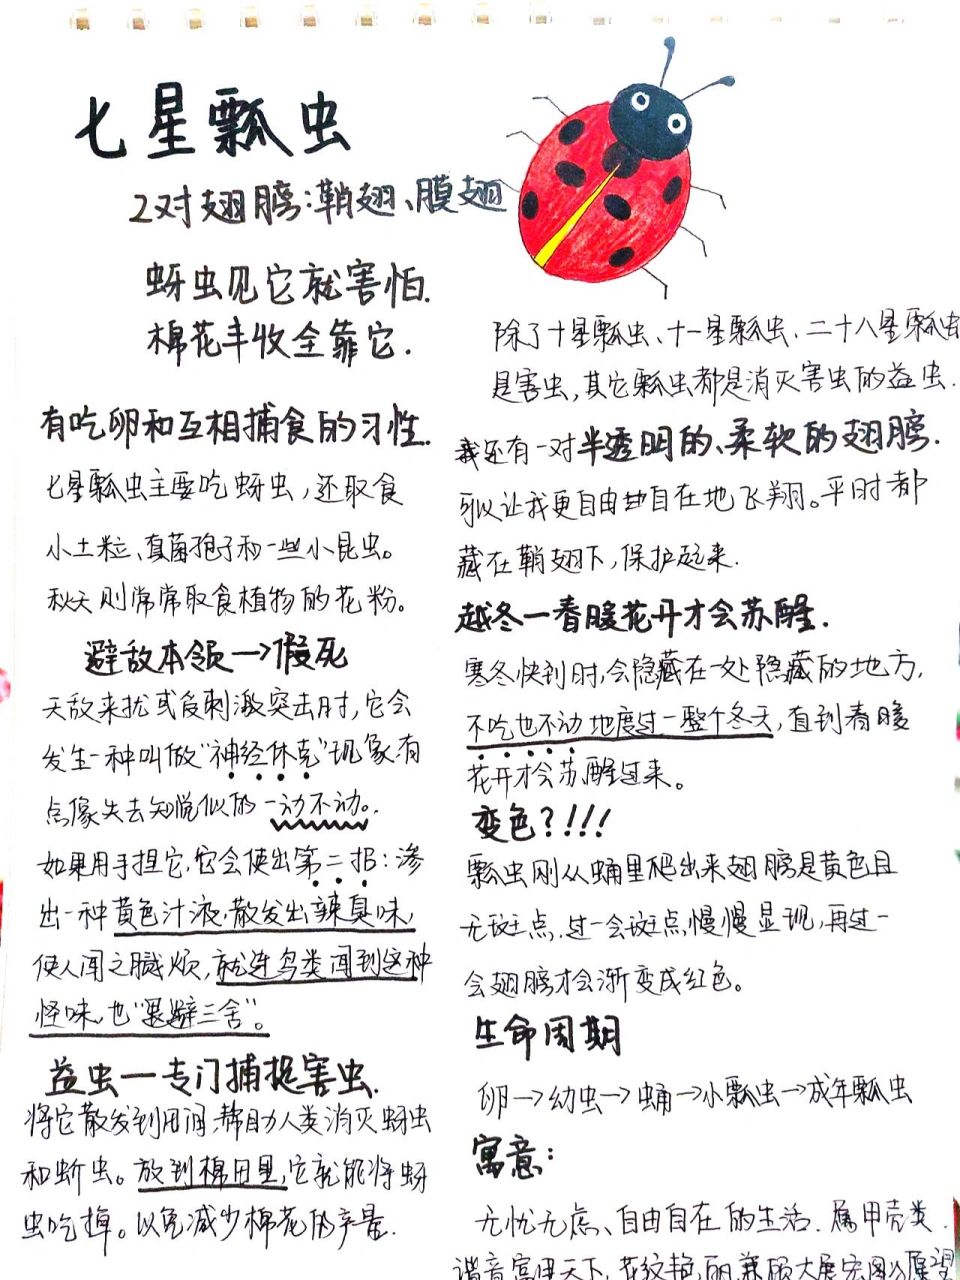 七星瓢虫
2对翅膀:鞘翅、膜翅
蚜虫见它就害怕.
棉花丰收全靠它.
有吃卵和互相捕食的习性.
七星瓢虫主要吃蚜虫,还取食
小土粒、真菌孢子和一些小昆虫。
秋天则常常取食植物的花粉。
避敌本领一→假死
天敌来扰或反刺激突击时,它会
发生一种叫做“神经休克”现象有
点像失去知觉似的一动不动。
如果用手捏它,它会使出第二招:渗
出一种黄色汁液,散发出辣臭味,
使人闻之膩烦,就连鸟类闻到这种
怪味,也“退避三舍”。
益虫一专门捕捉害虫.
将它散发到田间,帮助人类消灭蚜虫
和蚧虫。放到棉田里,它就能将蚜
虫吃掉。以免减少棉花的产量.
除了十星瓢虫、十一星瓢虫、二十八星瓢虫
是害虫,其它瓢虫都是消灭害虫的益虫.
我还有一对半透明的、柔软的翅膀.
可以让我更自由自在地飞翔。平时都
藏在鞘翅下,保护起来.
越冬一春暖花开才会苏醒.
寒冬快到时,会隐藏在一处隐藏的地方,
不吃也不动地度过一整个冬天,直到春暖
花开才会苏醒过来。
变色?!!!
瓢虫刚从蛹里爬出来翅膀是黄色且
无斑点,过一会斑点,慢慢显现,再过一
会翅膀才会渐变成红色。
生命周期
卵一→幼虫一→蛹一→小瓢虫一→成年瓢虫
寓意:
无忧无虑、自由自在的生活.属甲壳类.
谐音富甲天下,花纹艳丽,兼顾大展宏图以愿望